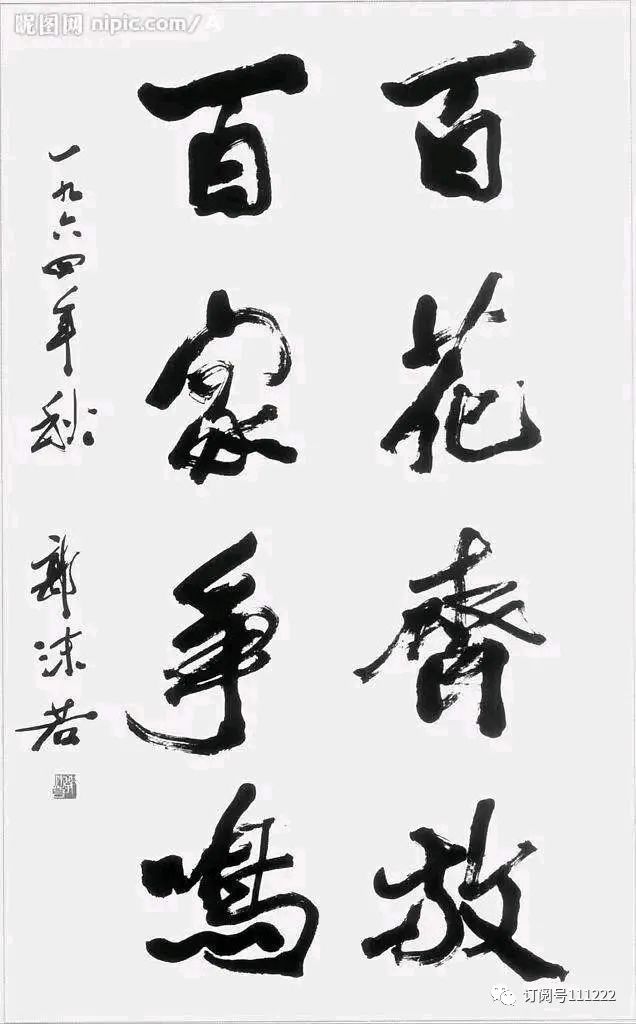 百花齊放
百家爭鳴
一九六四年秋 郭沫若
昵图网 nipic.com/
订阅号111222